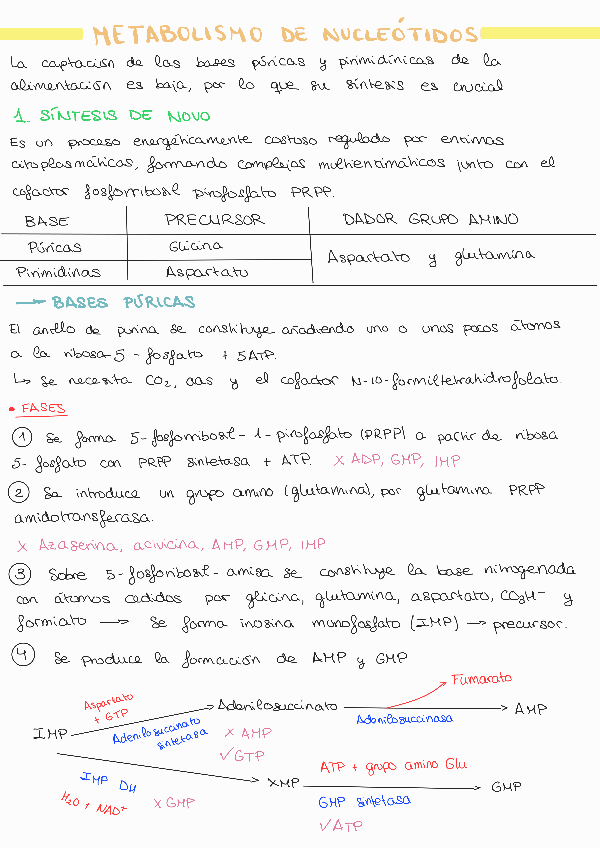 METABOLISMO DE NUCLEÓTIDOS
La captación de las bases púricas y pirimidínicas de la
alimentación es baja, por lo que su síntesis es crucial
1. SÍNTESIS DE NOVO
Es un proceso energéticamente costoso regulado por enzimas
citoplasmáticas, formando complejos multienzimáticos junto con el
cofactor fosforribosil pirofosfato PRPP.
BASE PRECURSOR DADOR GRUPO AMINO
Púricas Glicina Aspartato y glutamina
Pirimidinas Aspartato
→ BASES PÚRICAS
El anillo de purina se constituye añadiendo uno o unos pocos átomos
a la ribosa-5-fosfato + 5ATP.
↳ Se necesita CO₂, aas y el cofactor N-10-formiltetrahidrofolato.
• FASES
① Se forma 5-fosforribosil-1-pirofosfato (PRPP) a partir de ribosa
5-fosfato con PRPP sintetasa + ATP. X ADP, GMP, IMP
② Se introduce un grupo amino (glutamina), por glutamina PRPP
amidotransferasa.
X Azaserina, acivicina, AMP, GMP, IMP
③ Sobre 5-fosforibosil-amisa se constituye la base nitrogenada
con átomos cedidos por glicina, glutamina, aspartato, CO₃H⁻ y
formiato → Se forma inosina monofosfato (IMP) → precursor.
④ Se produce la formación de AMP y GMP
Fumarato
Aspartato
+ GTP
IMP → Adenilosuccinato → AMP
Adenilosuccinato
sintetasa
Adenilosuccinasa
X AMP
✓GTP
IMP DH
H₂O + NAD⁺
X GMP
XMP → GMP
ATP + grupo amino Glu
GMP sintetasa
✓ATP